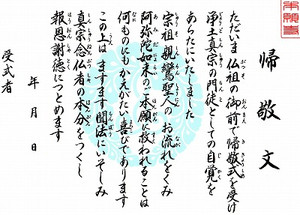 本願寺
帰敬文
ただいま 仏祖の御前で帰敬式を受け
浄土真宗の門徒としての自覚を
あらたにいたしました
宗祖 親鸞聖人のお流れをくみ
阿弥陀如来の ご本願に救われることは
何ものにもかえがたい喜びであります
この上は ますます聞法にいそしみ
真宗念仏者の本分をつくし
報恩謝徳につとめます
年 月 日
受式者